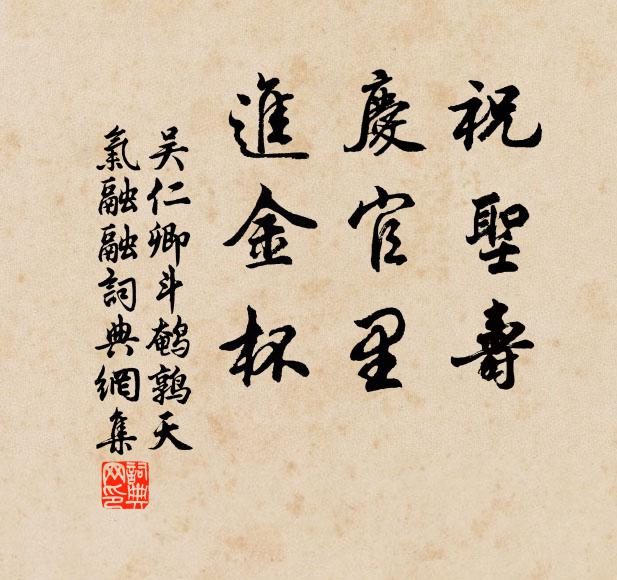 祝聖壽
慶官里
進金杯
吴仁卿斗鹌鹑天
氣融融詞典網集
詞典网印